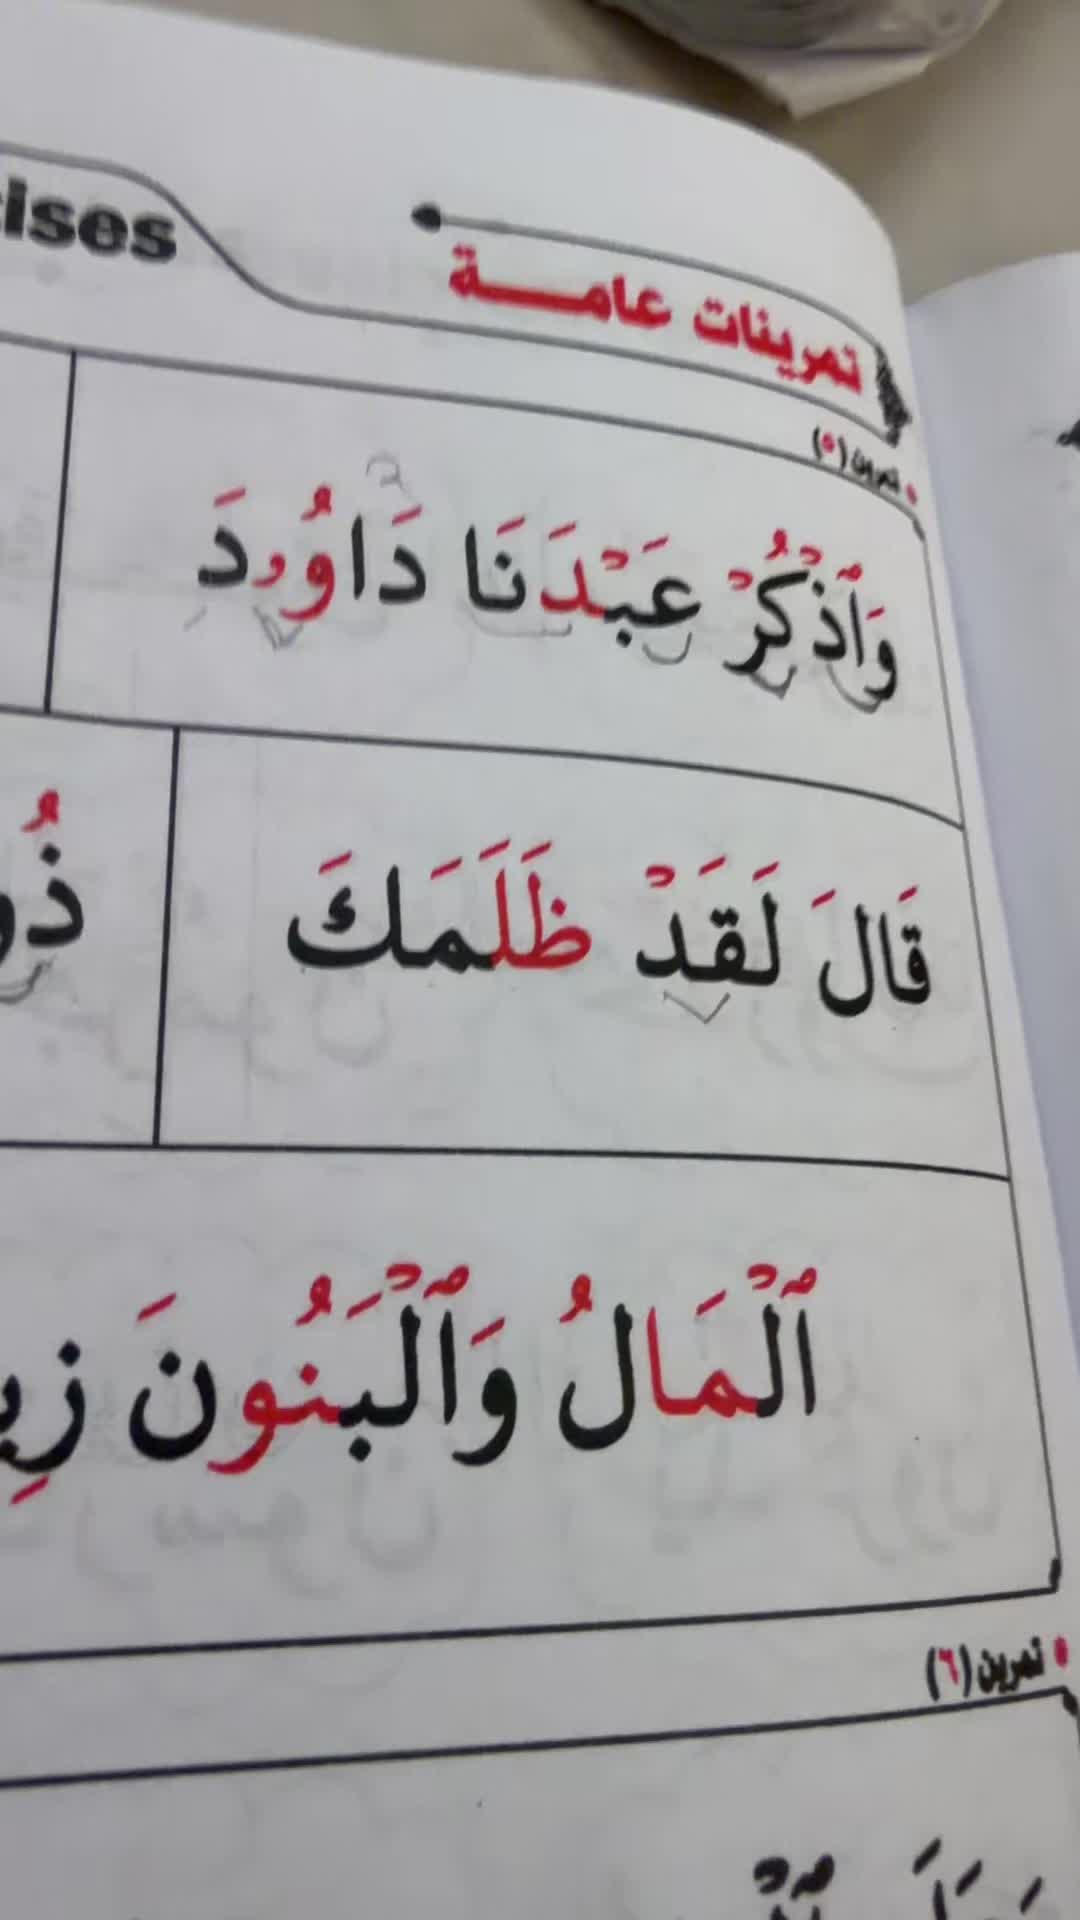 تمرينات عامـــة
تمرين (٥)
وَٱذْكُرْ عَبْدَنَا دَاوُۥدَ
قَالَ لَقَدْ ظَلَمَكَ
ٱلْمَالُ وَٱلْبَنُونَ
تمرين (٦)